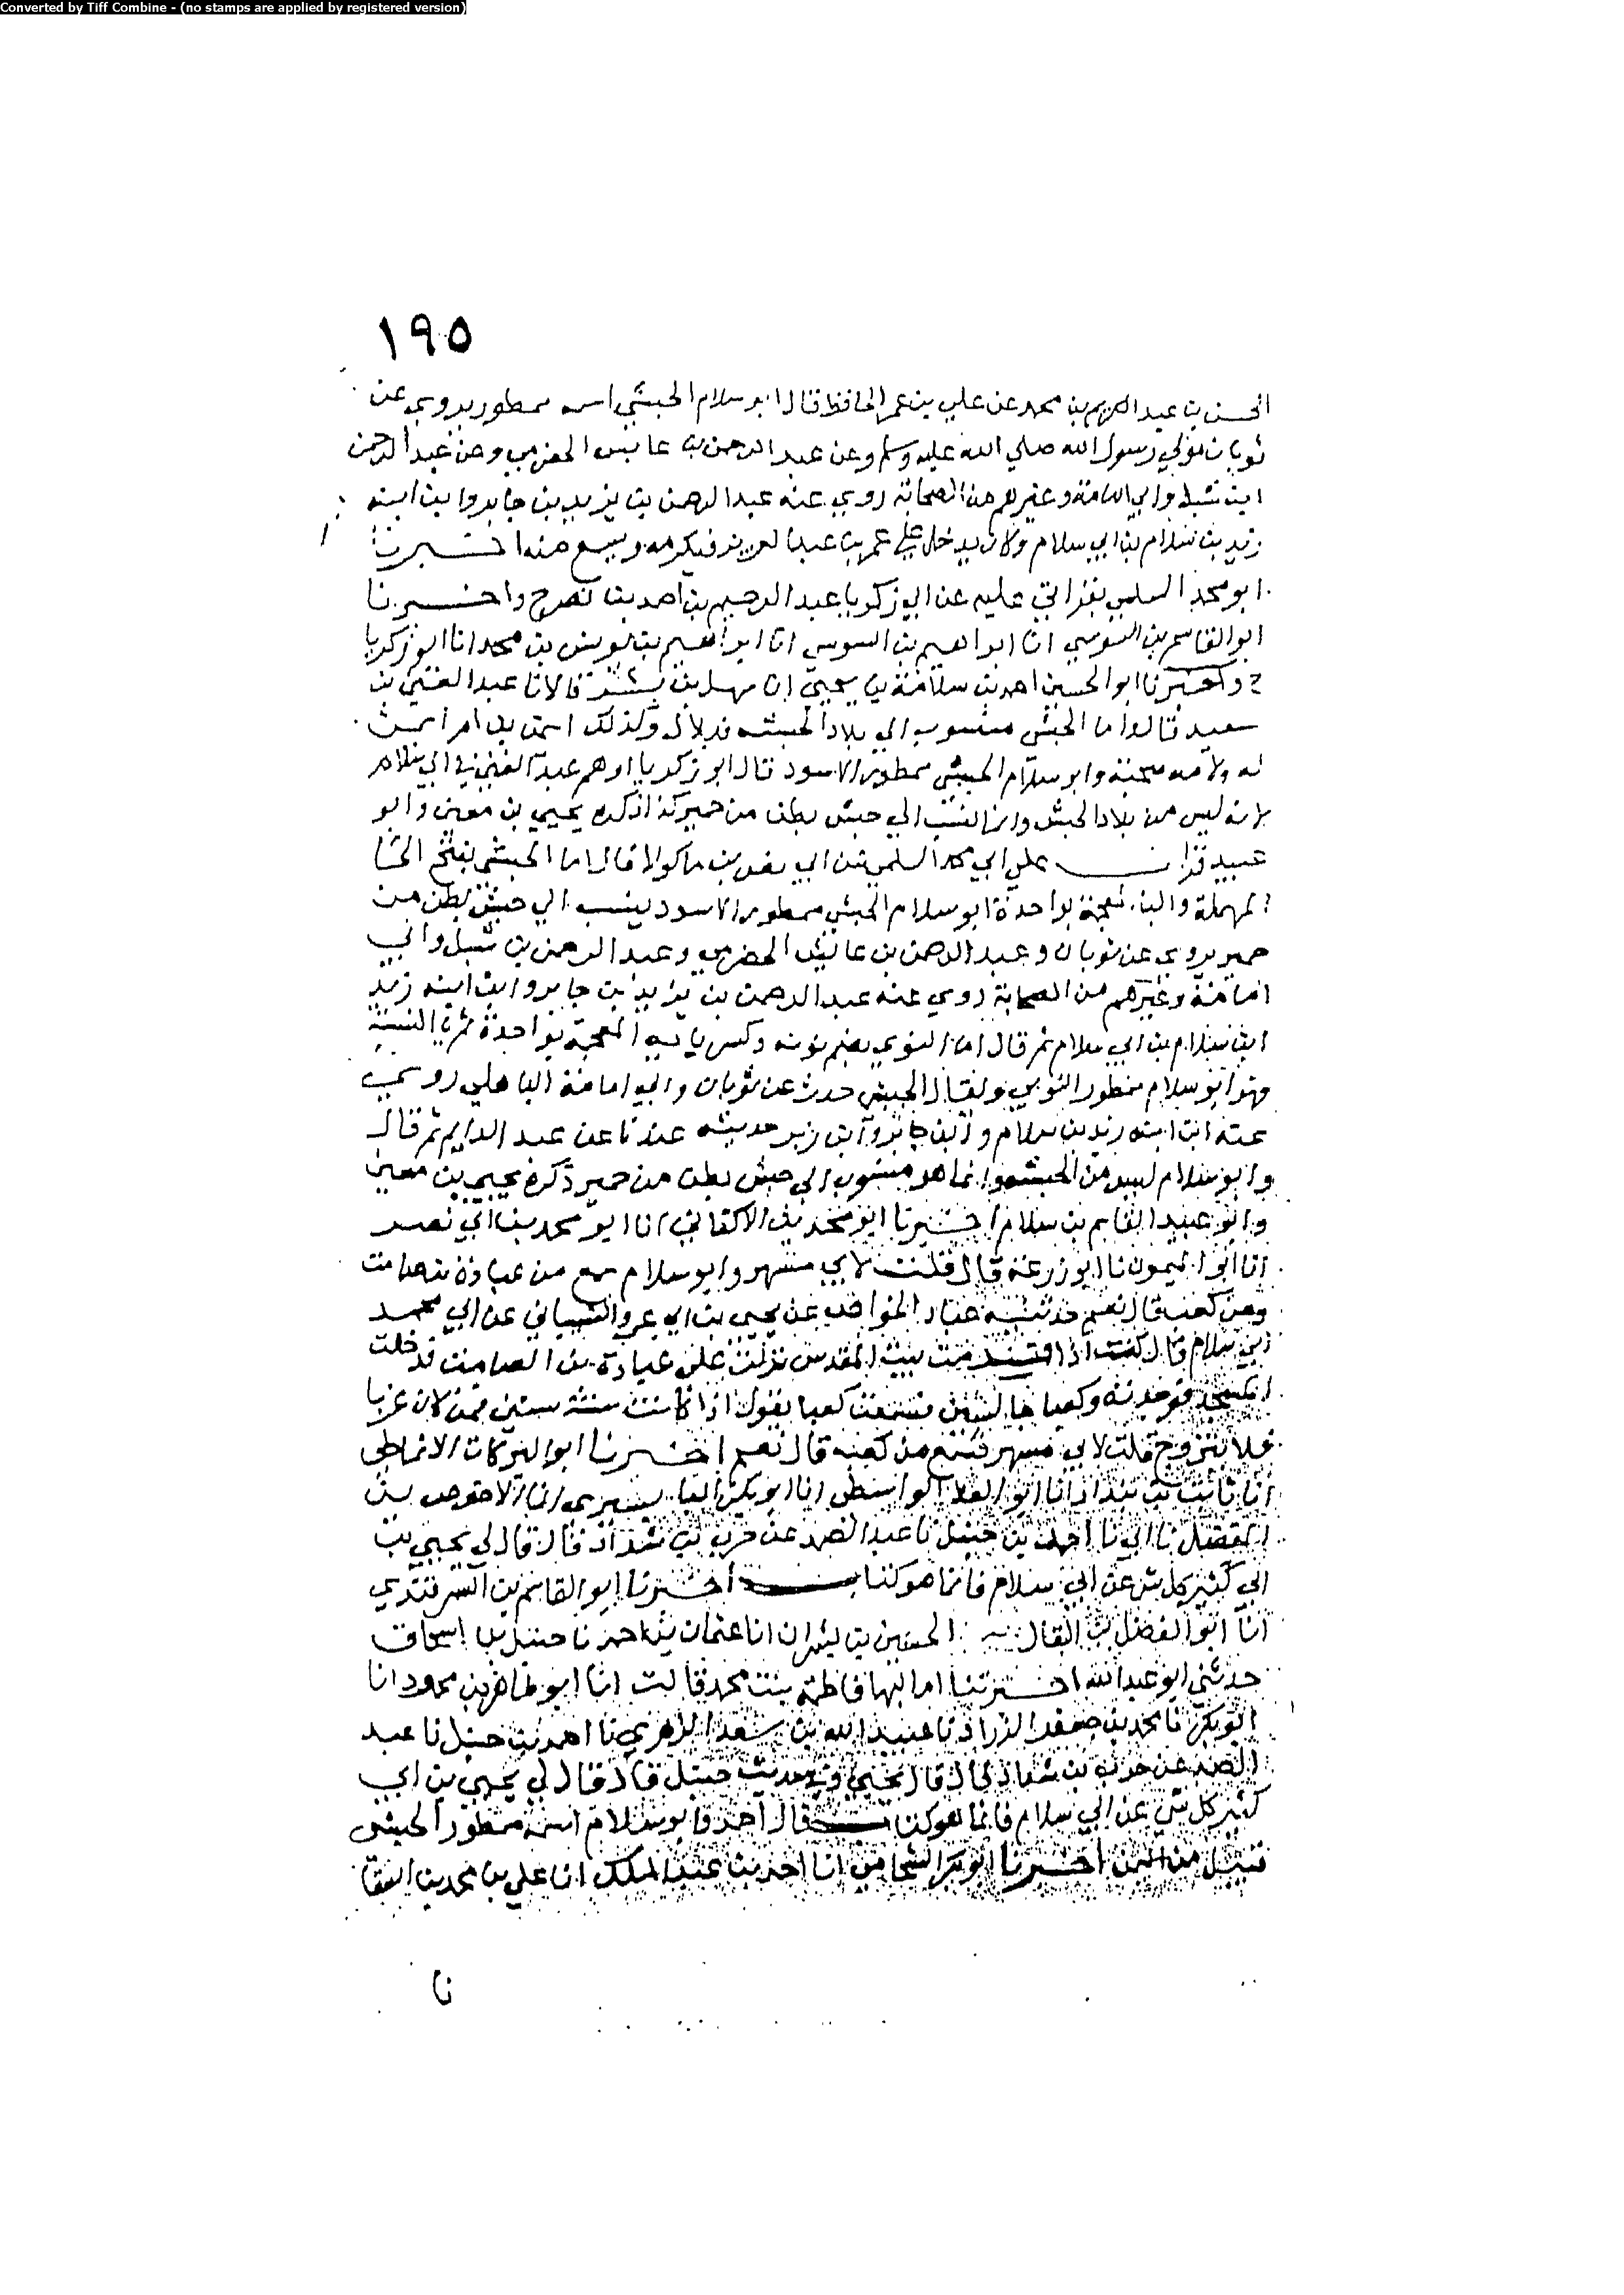 Converted by Tiff Combine - (no stamps are applied by registered version)
١٩٥
الحسن بن عبد الكريم بن محمد عن علي بن عمر الحافظ قال ابو سلام الحبشي اسمه ممطور يروي عن
ثوبان مولي رسول الله صلي الله عليه وسلم وعن عبد الرحمن بن عايس الحضرمي وعن عبد الرحمن
ابن شبل وابي امامة وغيرهم من الصحابة روي عنه عبد الرحمن بن يزيد بن جابر وابن ابنه
زيد بن سلام بن ابي سلام وكان يدخل علي عمر بن عبد العزيز فيكرمه ويسمع منه اخبرنا
ابو محمد السلمي بقراتي عليه عن ابي زكريا عبد الرحيم بن احمد بن نصر ح واخبرنا
ابو القاسم بن السوسي انا ابراهيم بن السوسي انا ابراهيم بن يونس بن محمد انا ابو زكريا
ح واخبرنا ابو الحسين احمد بن سلامة بن يحيي انا سهل بن بشر قالا نا عبد الغني بن
سعيد قال واما الحبشي منسوب الي بلاد الحبشة فبلال وكذلك
له ولامه صحبة وابو سلام الحبشي ممطور الاسود قال ابو زكريا اوهم عبد الغني في ابي سلام
لانه ليس من بلاد الحبش وانما النسب الي حبش بطن من حمير كذا ذكره يحيي بن معين وابو
عبيد قرات علي ابي محمد السلمي عن ابي نصر بن ماكولا قال اما الحبشي بفتح الحا
المهملة والبا معجمة بواحدة ابو سلام الحبشي ممطور الاسود ينسب الي حبش بطن من
حمير يروي عن ثوبان وعبد الرحمن بن عايش الحضرمي وعبد الرحمن بن شبل وابي
امامة وغيرهم من الصحابة روي عنه عبد الرحمن بن يزيد بن جابر وابن ابنه زيد
ابن سلام بن ابي سلام ثم قال اما النوبي بضم نونه وكسر يايه المعجمة بواحدة
فهو ابو سلام ممطور النوبي ويقال الحبشي حدث عن ثوبان وابي امامة الباهلي روي
عنه ابن ابنه زيد بن سلام وابن جابر وابن زبر حديثه عندنا عن عبد الدايم ثم قال
وابو سلام ليس من الحبشة وانما هو منسوب الي حبش بطن من حمير ذكره يحيي بن معين
وابو عبيد القاسم بن سلام اخبرنا ابو محمد بن الاكفاني انا ابو محمد بن ابي نصر
انا ابو الميمون نا ابو زرعة قال قلت لابي مسهر وابو سلام سمع من عبادة بن صامت
ومن كعب قال نعم حدثنيه عباد الخواص عن يحيي بن ابي عمرو الشيباني عن ابي محمد
ابي سلام قال كنت اذا قدمت بيت المقدس نزلت علي عبادة بن الصامت فدخلت
المسجد فوجدته وكعبا جالسين فسمعت كعبا يقول اذا كانت سنة ستين فمن كان عزبا
فلا يتزوج قلت لابي مسهر فسمع من كعب قال نعم اخبرنا ابو البركات الانماطي
انا ثابت بن بندار انا ابو العلا الواسطي انا ابو بكر البابسيري انا الاحوص بن
المفضل نا ابي نا احمد بن حنبل نا عبد الصمد عن حرب بن شداد قال قال لي يحيي بن
ابي كثير كل شي عن ابي سلام فانما هو كتاب اخبرنا ابو القاسم بن السمرقندي
انا ابو الفضل بن البقال الحسين بن بشران انا عثمان بن احمد نا حنبل بن اسحاق
حدثني ابو عبد الله اخبرتنا ام البها فاطمة بنت محمد قالت انا ابو طاهر بن محمود انا
ابو بكر نا محمد بن جعفر الزراد نا عبيد الله بن سعد الزهري نا احمد بن حنبل نا عبد
الصمد عن حرب بن شداد قال قال يحيي وفي حديث حنبل قال قال لي يحيي بن ابي
كثير كل شي عن ابي سلام فانما هو كتاب قال احمد وابو سلام اسمه ممطور الحبشي
قبيل من اليمن اخبرنا ابو بكر الشحامي انا احمد بن عبد الملك انا علي بن محمد بن السقا
نا